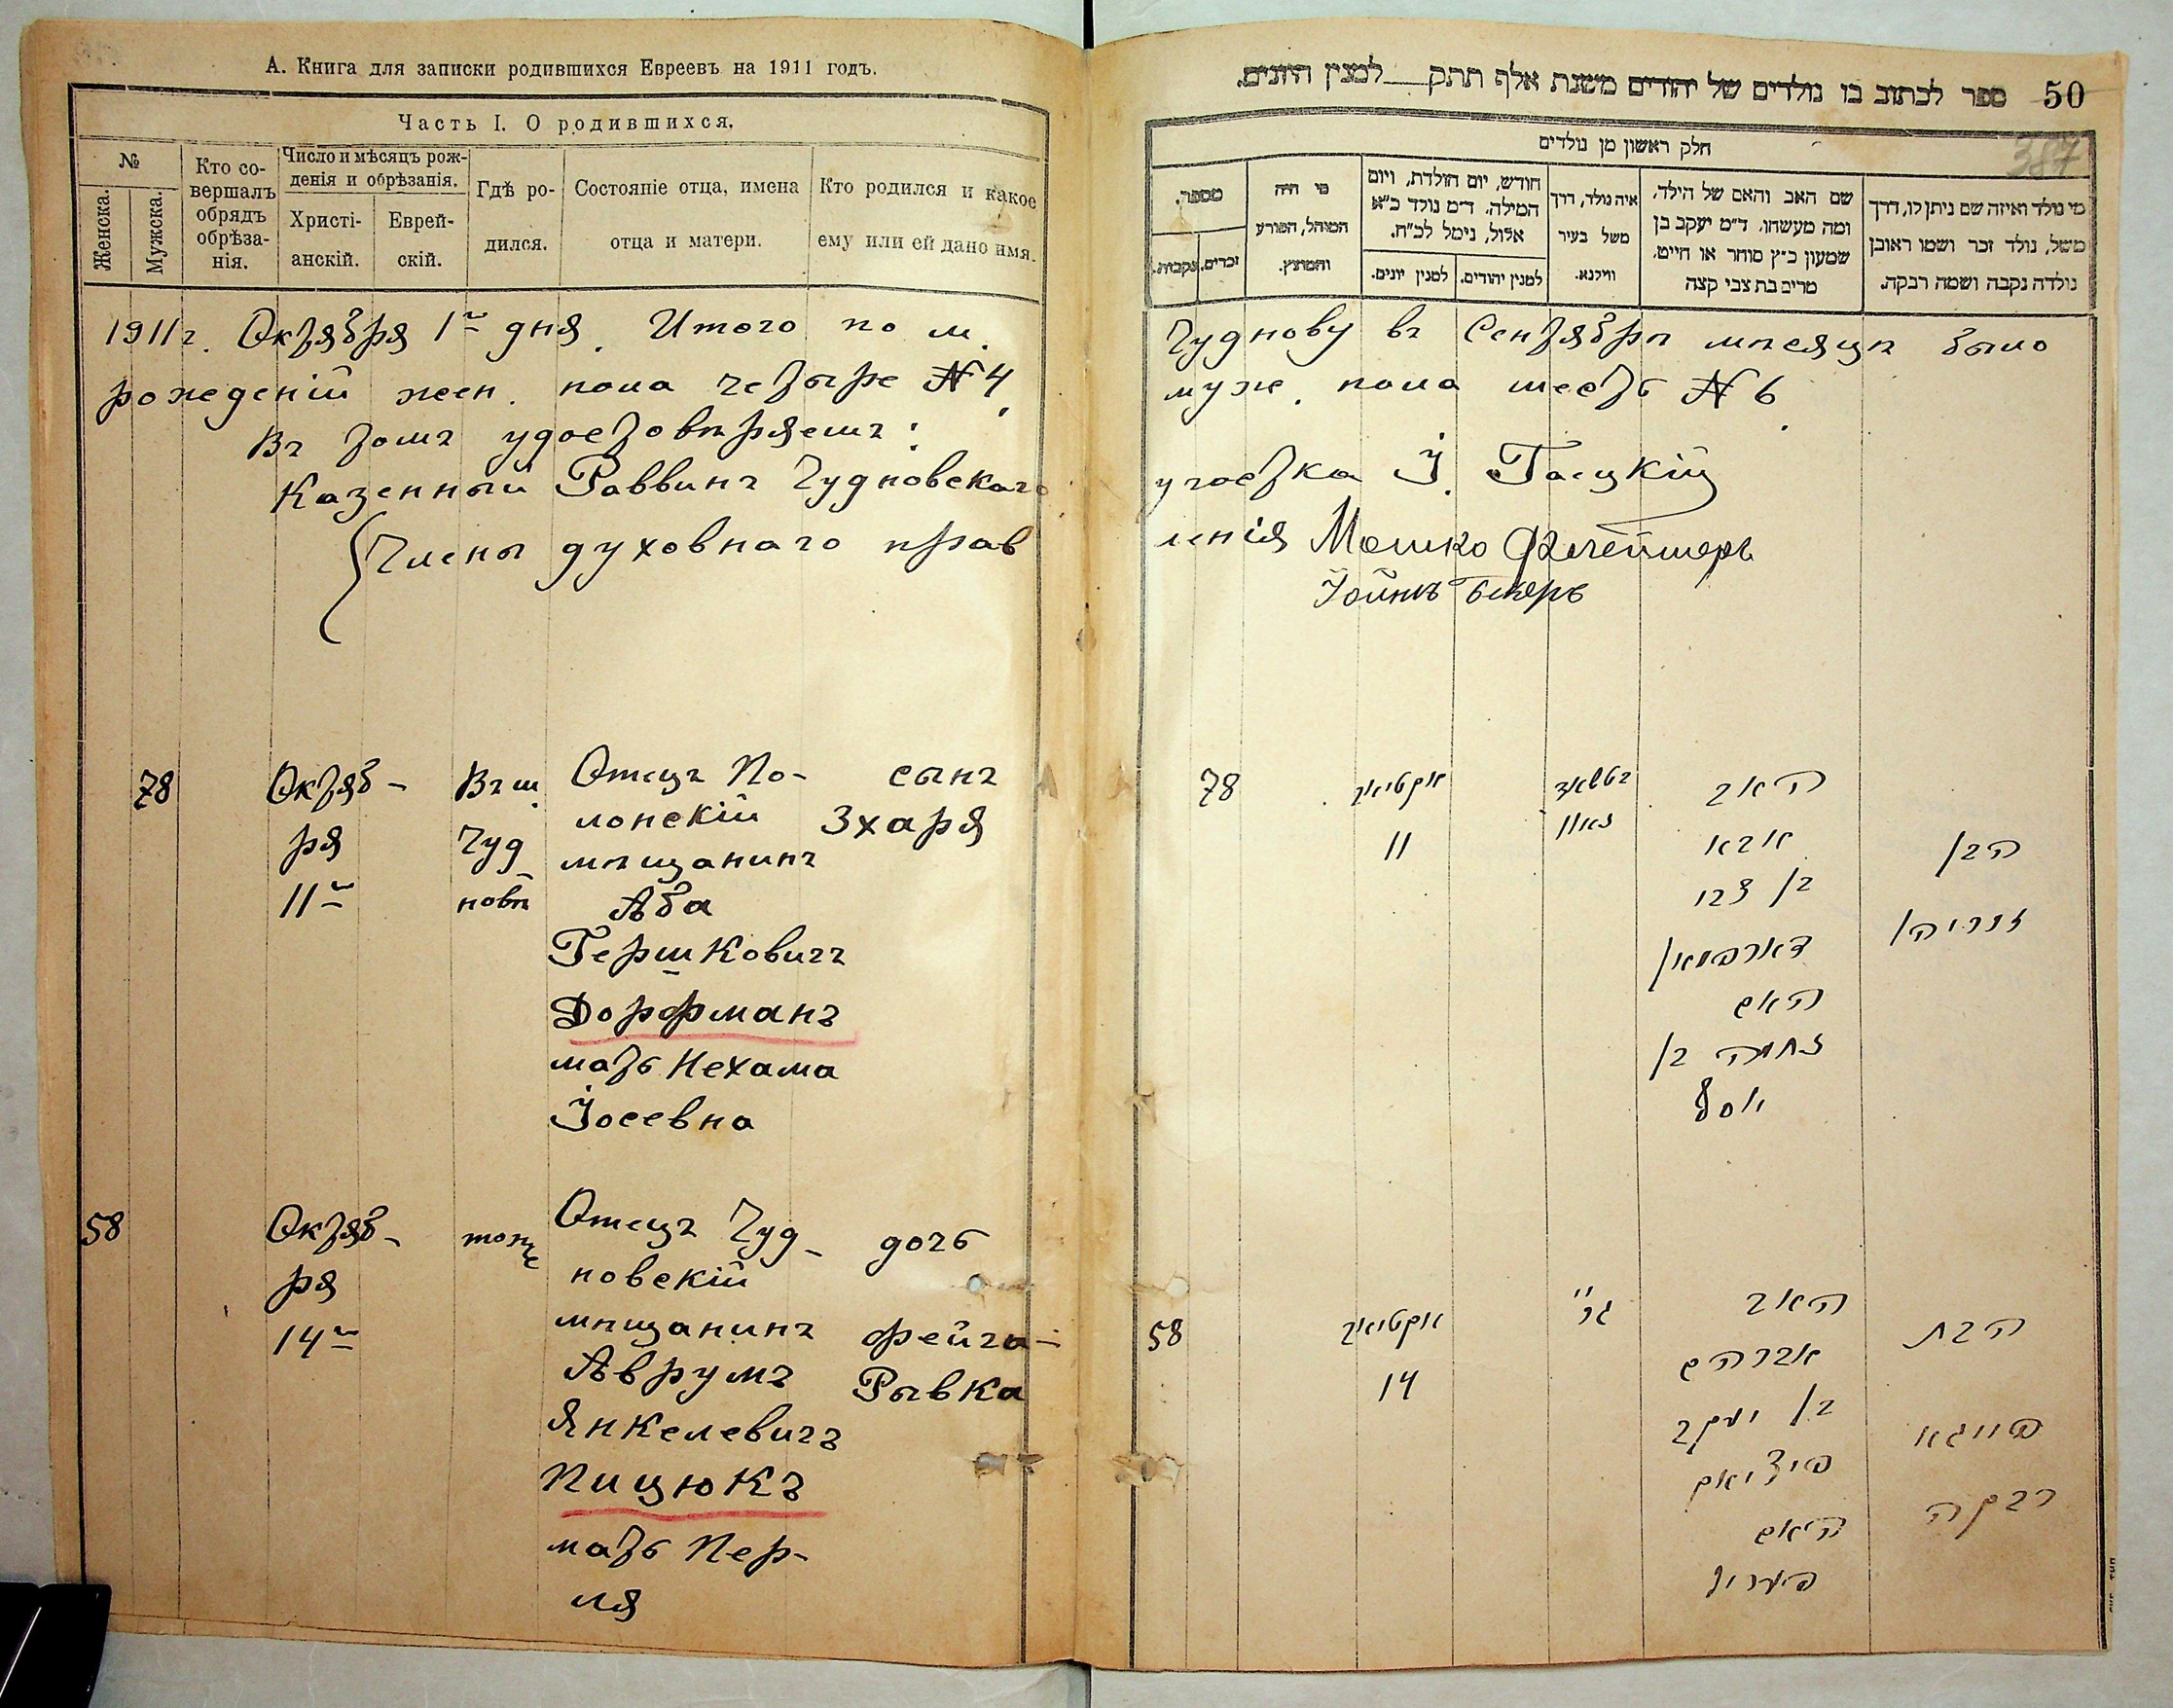 А. Книга для записки родившихся Евреевъ на 1911 годъ.
Часть I. О родившихся.
№
Женска.
Мужска.
Кто со-
вершалъ
обрядъ
обрѣза-
нія.
Число и мѣсяцъ рож-
денія и обрѣзанія.
Христі-
анскій.
Еврей-
скій.
Гдѣ ро-
дился.
Состояніе отца, имена
отца и матери.
Кто родился и какое
ему или ей дано имя.
1911 г. Октября 1го дня. Итого по м.
рожденій жен. пола четыре № 4
Въ томъ удостовѣряемъ:
Казенный Раввинъ Чудновскаго
Члены духовнаго прав
78
Октяб-
ря
11го
Въ м.
Чуд
новѣ
Отецъ По-
лонскій
мѣщанинъ
Аба
Гершковичъ
Дорфманъ
мать Нехама
Іосевна
сынъ
Зхаря
58
Октяб-
ря
14го
тоже
Отецъ Чуд-
новскій
мѣщанинъ
Аврумъ
Янкелевичъ
Пицюкъ
мать Пер-
ля
дочь
Фейга-
Рывка
50
ספר לכתוב בו נולדים של יהודים משנת אלף תתק למנין היונים.
387
חלק ראשון מן נולדים
מספר.
זכרים.
נקבות.
מי היה
המוהל, הפורע
והמוצץ.
חודש, יום הולדת, ויום
המילה. ד״מ נולד כ״א
אלול, נימל לכ״ח.
למנין יונים.
למנין יהודים.
איה נולד, דרך
משל בעיר
ווילנא.
שם האב והאם של הילד,
ומה מעשהו. ד״מ יעקב בן
שמעון כ״ץ סוחר או חייט,
מרים בת צבי קצה
מי נולד ואיזה שם ניתן לו, דרך
משל, נולד זכר ושמו ראובן
נולדה נקבה ושמה רבקה.
Чуднову въ Сентябрѣ мѣсяцѣ было
муж. пола шесть № 6
участка І. Гацкій
ленія Мошко
78
11
האב
אבא
בן צבי
דארפמאן
האם
נחמה בן
יוסף
הבן
זכריה
58
14
האב
אברהם
בן יעקב
האם
הבת
פייגא
רבקה